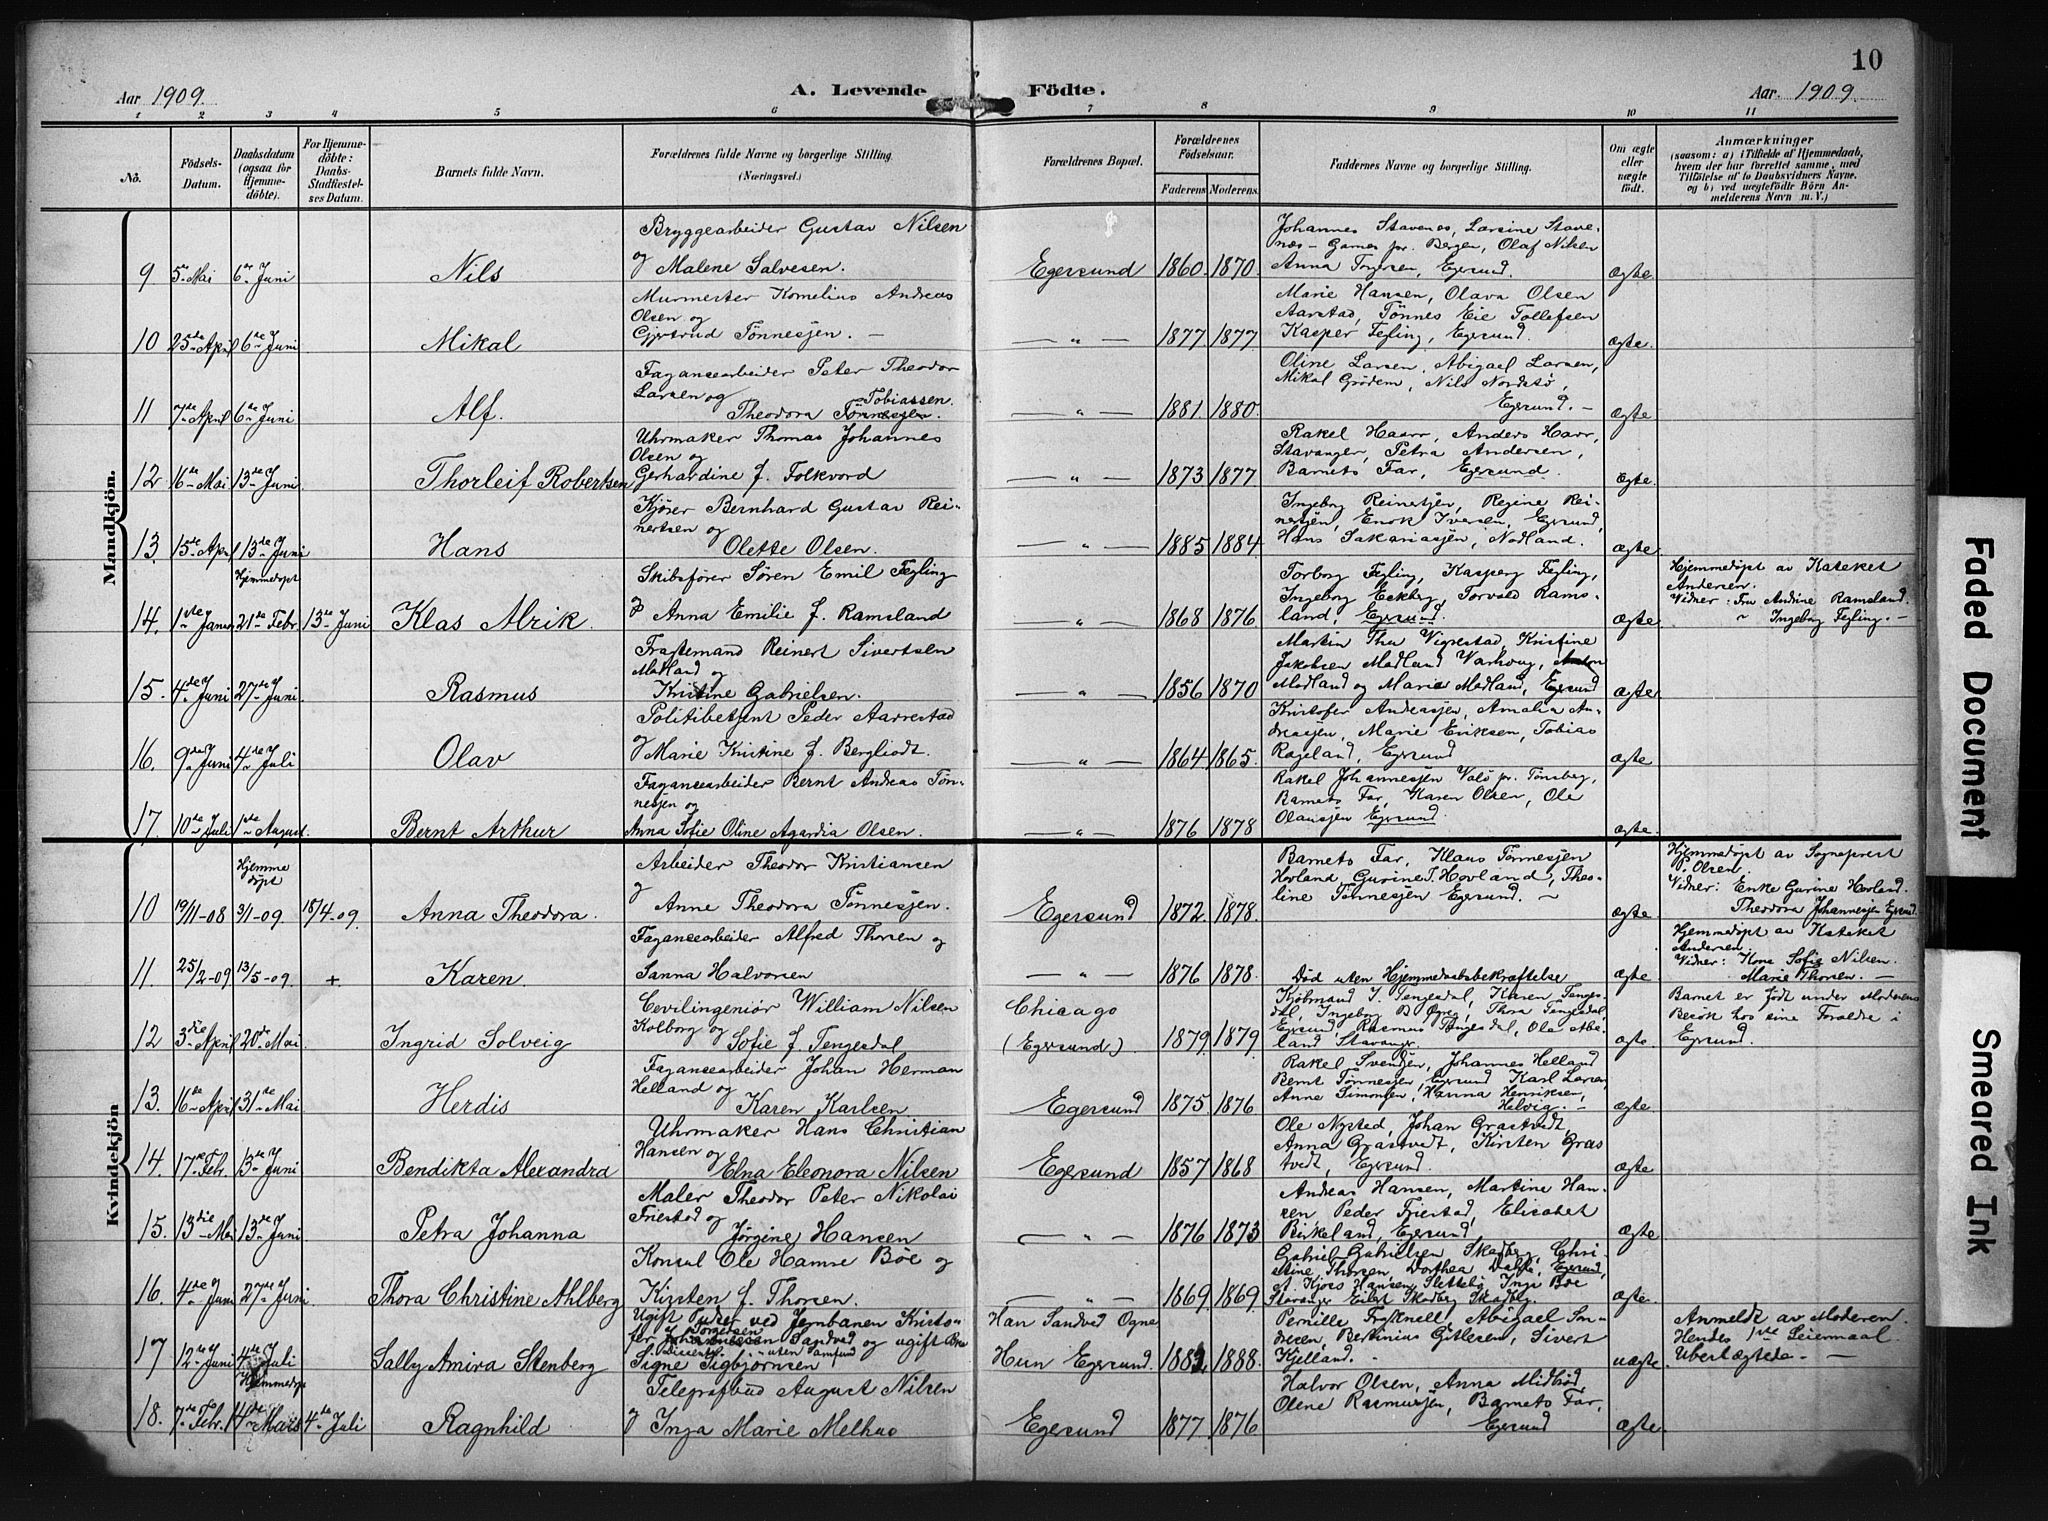 10
Aar 1909. A. Levende Födte. Aar 1909.
1 2 3 4 5 6 7 8 9 10 11
No. Födsels-Datum. Daabsdatum (ogsaa for Hjemme-döbte). For Hjemme-döbte: Daabs-Stadfæstelses Datum. Barnets fulde Navn. Forældrenes fulde Navne og borgerlige Stilling. (Næringsvei.) Forældrenes Bopæl. Forældrenes Födselsaar. Faderens. Moderens. Faddernes Navne og borgerlige Stilling. Om ægte eller uægte födt. Anmærkninger
(saasom: a) i Tilfælde af Hjemmedaab, hvem der har forrettet samme, med Tilföielse af to Daabsvidners Navne, og b) ved uægtefödte Börn Anmelderens Navn m. V.)
Mandkjön.
Bryggearbeider Gustav Nilsen
og Malene Salvesen.
9 5te Mai 6te Juni Nils Egersund 1860. 1870.
Johannes Stavenes, Larsine Stave-
næs - Games pr. Bergen, Olaf Nilsen
Anna Ingersen, Egersund. ægte
Murmester Kornelius Andreas
Olsen og
Gjertrud Tönnesjen. —
10 25de April 6te Juni Mikal — " — 1877. 1877
Marie Hansen, Olava Olsen
Aarstad, Tönnes Eie Tollefsen
Kasper Fejling, Egersund. ægte.
Fayancearbeider Peter Theodor
Larsen og Tobiassen.
Theodora Tönnesjen.
11 7de April 6te Juni Alf. — " — 1881. 1880.
Oline Larsen, Abigael Larsen,
Mikal Grödem, Nils Nordstö,
Egersund. — ægte
Uhrmaker Thomas Johannes
Olsen og
Gerhardine f. Folkvord
12 16de Mai 13de Juni Thorleif Robertsen — " — 1873. 1877.
Rakel Haarr, Anders Haarr,
Stavanger, Petra Andersen,
Barnets Far, Egersund. ægte.
Kjører Bernhard Gustav Rei-
nertsen og
Olette Olsen.
13. 15de April 13de Juni Hans — " — 1885. 1884.
Ingeborg Reinertsjen, Regine Rei-
nertsjen, Enok Iversen, Egersund,
Hans Sakariasjen, Nodland. ægte
Hjemmedøpt
Skibsfører Søren Emil Fejling
og Anna Emilie f. Ramsland
14. 1ste Januar 21de Febr. 13de Juni Klas Alrik. — " — 1868 1876.
Torborg Fejling, Kasperg Fejling,
Ingeborg Eckberg, Torvald Rams-
land, Egersund. ægte.
Hjemmedøpt av Kateket
Andersen.
Vidner: Fru Andrine Ramsland.
" Ingeborg Fejling. —
Fragtemand Reinert Sivertsen
Modland og
Kristine Gabrielsen.
15. 4de Juni 27de Juni Rasmus — " — 1856 1870
Martin Thu Vigrestad, Kristine
Jakobsen Modland Varhoug, Anton
Modland og Marie Modland, Egersund ægte.
Politibetjent Peder Aarrestad
og Marie Kristine f. Bergliodt.
16. 9de Juni 4de Juli Olav — " — 1864. 1865.
Kristofer Andreasjen, Amalia An-
dreasjen, Marie Eriksen, Tobias
Rageland, Egersund ægte
Fayancearbeider Bernt Andreas Tön-
nesjen og
Anna Sofie Oline Agardia Olsen.
17. 10de Juli 1ste August. Bernt Arthur — " — 1876 1878
Rakel Johannesjen Valö pr. Tönsberg,
Barnets Far, Karen Olsen, Ole
Olausjen Egersund. ægte.
Kvindekjön
Hjemme
døpt
Arbeider Theodor Kristiansen
og Anne Theodora Tönnesjen.
10 19/11-08 3/1-09. 18/4-09. Anna Theodora. Egersund 1872. 1878.
Barnets Far, Klaus Tönnesjen
Hovland, Gurine T. Hovland, Theo-
line Tönnesjen Egersund. — ægte
Hjemmedøpt av Sogneprest
P. Olsen.
Vidner: Enke Gurine Hovland.
Theodora Johannesjen Egersund.
Fayancearbeider Alfred Thorsen og
Sanna Halvorsen
11. 25/2-09 13/5-09. + Karen. — " — 1876 1878. Død uten Hjemmedaabsbekræftelse ægte
Hjemmedøpt av Kateket
Andersen.
Vidner: Kona Sofie Nilsen.
Marie Thorsen. —
Cevilingeniör William Nilsen
Kolborg og
Sofie f. Tengesdal
12 3die April 20de Mai Ingrid Solveig Chicago
(Egersund). 1879. 1879.
Kjöbmand J. Tengesdal, Karen Tenges-
dal, Ingeborg B. Øgre, Thora Tengesdal,
Egersund, Rasmus Tengesdal, Ole Abe-
land Stavanger. ægte.
Barnet er født under Moderens
Besøk hos sine Forældre i
Egersund.
Fayancearbeider Johan Herman
Helland og
Karen Karlsen
13. 16de April 31te Mai Herdis Egersund 1875. 1876
Rakel Svendsen, Johannes Helland
Bernt Tönnesjen, Egersund Karl Larsen
Anne Simonsen, Hanna Henriksen,
Helvig. — ægte.
Uhrmaker Hans Christian
Hansen og
Elna Eleonora Nilsen
14. 17de Febr. 13de Juni Bendikta Alexandra Egersund 1857 1868
Ole Nysted, Johan Grastvedt,
Anna Grastvedt, Kirsten Gras
tvedt, Egersund. ægte
Maler Theodor Peter Nikolai
Friestad og
Jørgine Hansen
15. 13die Mai 13de Juni Petra Johanna — " — 1876 1873
Andreas Hansen, Martine Han-
sen Peder Friestad, Elisabet
Birkeland, Egersund ægte
Konsul Ole Hamre Böe og
Kirsten f. Thorsen.
16. 4de Juni 27de Juni. Thora Christine Ahlberg — " — 1869. 1869.
Gabriel Gabrielsen Skadberg, Chri-
stine Thorsen, Dorthea Dahle, Egersund,
A. Kjørs Hansen Slettebö Inga Böe
Stavanger Eilert Skadberg Skadberg. ægte.
Ugift Pudser ved Jernbanen Kristo-
fer Sandved og ugift
Dissenter uten Samfund
Signe Sigbjørnsen
17 12te Juni 4de Juli Sally Amira Stenberg Han Sandved Ogne
Hun Egersund. 1888.
Pernille Abigael
Bertinius Gitlesen, Sivert
Kjelland. — uægte.
Anmeldt av Moderen.
Hendes 1ste Leiermaal
Uberlægtede. —
Hjemmedøpt
Telegrafbud August Nilsen
og Inga Marie Melhus
18. 7de Febr. 14de Marts 4de Juli Ragnhild Egersund 1877. 1876
Halvor Olsen, Anna Midbröd
Olene Rasmusjen, Barnets Far,
Egersund ægte.
Faded Document
Smeared Ink